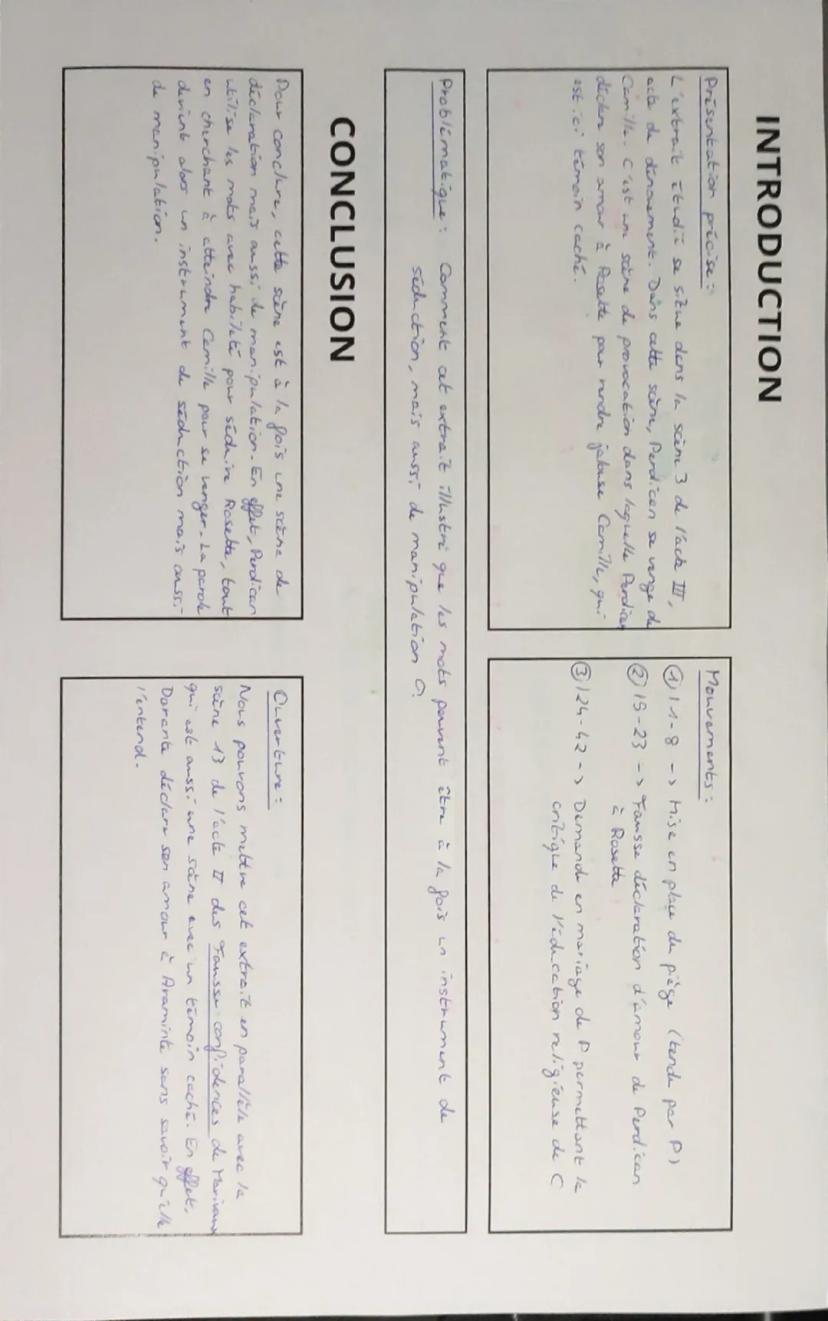 INTRODUCTION
Présentation précise :
L'extrait étudié se situe dans la scène 3 de l'acte III,
acte de dénouement. Dans cette scène, Perdican se venge de
Camille. C'est une scène de provocation dans laquelle Perdican
déclare son amour à Rosette pour rendre jalouse Camille, qui
est ici témoin caché.
Mouvements :
① l 1-8 -> Mise en place du piège (tendu par P)
② l 9-23 -> Fausse déclaration d'amour de Perdican
à Rosette
③ l 24-42 -> Demande en mariage de P permettant la
critique de l'éducation religieuse de C
Problématique : Comment cet extrait illustre que les mots peuvent être à la fois un instrument de
séduction, mais aussi de manipulation ?
CONCLUSION
Pour conclure, cette scène est à la fois une scène de
déclaration mais aussi de manipulation. En effet, Perdican
utilise les mots avec habileté pour séduire Rosette, tout
en cherchant à atteindre Camille pour se venger. La parole
devient alors un instrument de séduction mais aussi
de manipulation.
Ouverture :
Nous pouvons mettre cet extrait en parallèle avec la
scène 13 de l'acte II des Fausses confidences de Marivaux
qui est aussi une scène avec un témoin caché. En effet,
Dorante déclare son amour à Araminte sans savoir qu'elle
l'entend.